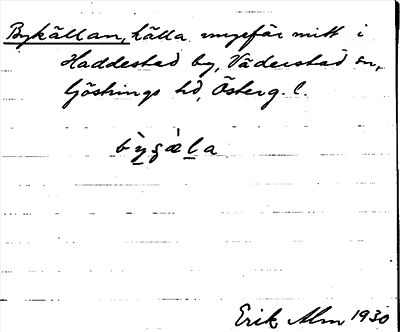 Bykällan, källa ungefär mitt i
Haddestad by, Väderstad sn,
Göstrings hd, Österg. l.
bỳgæ̀la
Erik Alm 1930